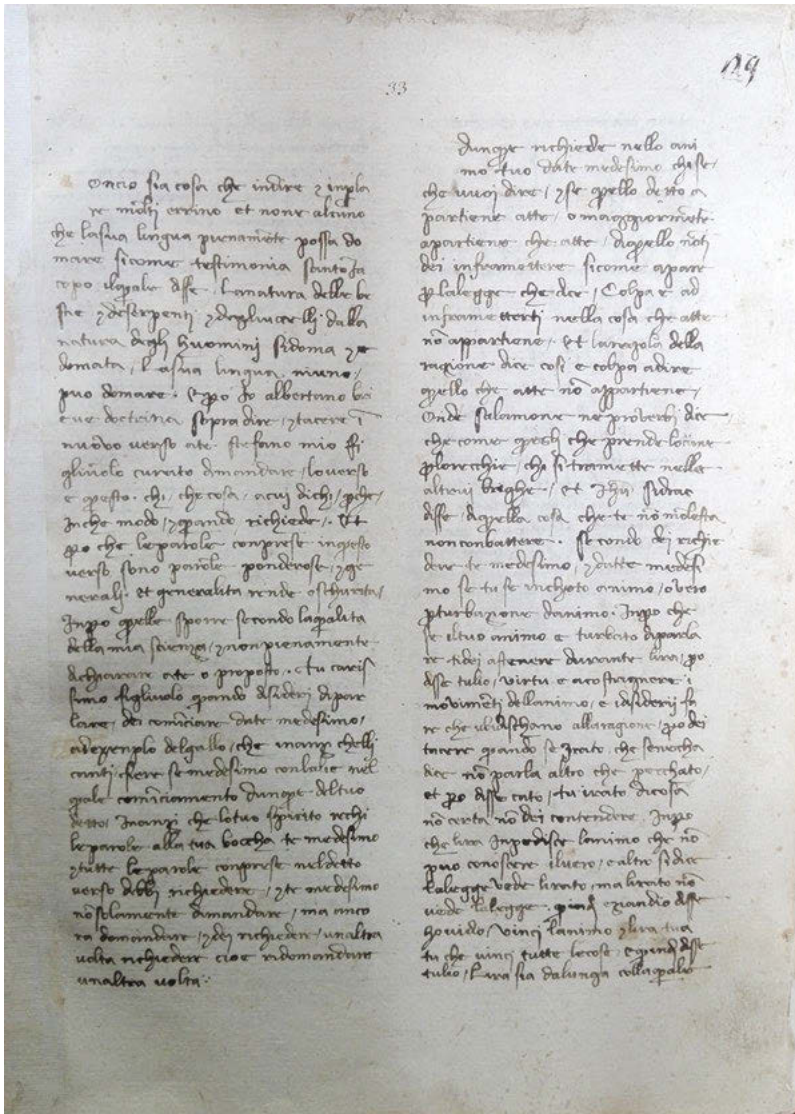 33
29
Oncio sia cosa che indire ⁊ inpla
re molti errino et none alcuno
che lasua lingua pienamēte possa do
mare sicome testimonia santo Ja
copo ilquale disse Lanatura delle be
stie ⁊ deserpenti ⁊ degliuccelli dalla
natura degli huomini sidoma ⁊ e
domata / Lasua lingua niuno /
puo domare. Et ꝑo Jo albertano bri
eue doctrina sopra dire / ⁊ tacere ī
nuovo verso ate Stefano mio fi
gliuolo curato dimandare / loverso
e questo. chi / che cosa / acui dichi / ꝑche /
Inche modo / ⁊ quando richiede /. Et
ꝑo che leparole conprese inquesto
verso sono parole ponderose / ⁊ ge
nerali. et generalita rende oschurita /
Inꝑo quelle sporre secondo laqualita
della mia scienza / ⁊ non pienamente
dichiarare ate o proposto. Tu caris
simo figliuolo quando disideri dipar
lare / dei comīciare date medesimo /
adexenplo delgallo / che inanzi chelli
canti sifiere se medesimo conlalie nel
quale comīciamento dunque deltuo
detto / Inanzi che lotuo spirito rechi
leparole alla tua boccha te medesimo
⁊ tutte leparole conprese neldetto
verso debbi richiedere / ⁊ te medesimo
nō solamente dimandare / ma anco
ra domandare / ⁊ dei richiedere / unaltra
volta richiedere cioe ridomandare
unaltra volta
dunque richiede nello ani
mo tuo date medesimo chi se /
che vuoi dire / ⁊ se quello detto a
partiene atte / o maggiormēte
apartiene che atte / diquello nōti
dei inframettere sicome apare
ꝑ lalegge che dice / Colpa e ad
inframetterti nella cosa che atte
nō appartiene. Et laregola della
ragione dice cosi e colpa adire
quello che atte nō appartiene /
Onde salamone ne proverbi dice
che come quegli che prende locane
ꝑ lorecchie / chi si tramette nelle
altrui brighe / et Jhū sidrac
disse / diquella cosa che te nō molesta
non conbattere. Secondo dei richie
dere te medesimo / ⁊ datte medesi
mo se tu se inchieto animo / overo
ꝑturbazione danimo. Inꝑo che
se iltuo animo e turbato diparla
re tidei astenere durante lira / ꝑo
disse tulio / virtu e acostrignere i
movimēti dellanimo / e idisiderii fa
re che ubidischano allaragione / ꝑo dei
tacere quando se Jrato / che senecha
dice nō parla altro che pecchato /
et ꝑo disse cato / tu irato dicosa
nō certa nō dei contendere. Inꝑo
che lira Inpedisce lanimo che nō
puo conoscere iluero / e altri si dice
lalegge vede lirato / ma lirato nō
vede lalegge. quindi exiandio disse
hovidio / Vinci lanimo ⁊ lira tua
tu che vinci tutte lecose. ⁊ quindi disse
tulio / Lira sia dalunga collaquale